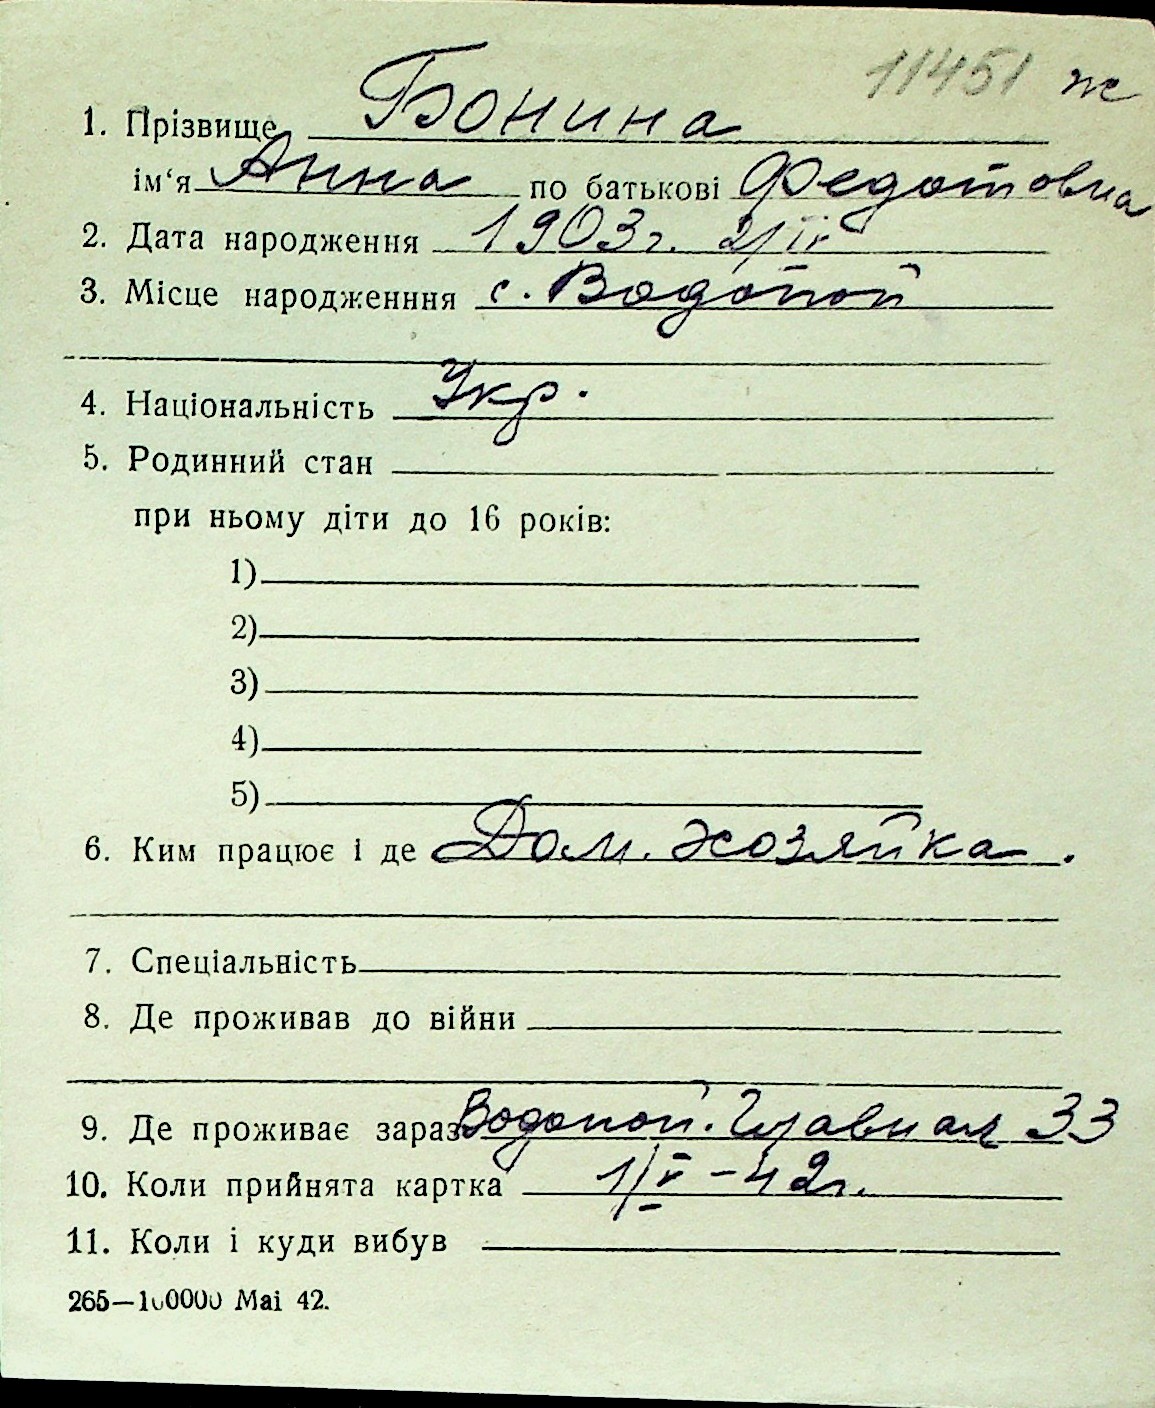 11451 ж
1. Прізвище Бонина
ім‘я Анна по батькові Федотовна
2. Дата народження 1903 г. 2/IV
3. Місце народженння с. Водопой
4. Національність Укр.
5. Родинний стан
при ньому діти до 16 років:
1)
2)
3)
4)
5)
6. Ким працює і де Дом. хозяйка.
7. Спеціальність
8. Де проживав до війни
9. Де проживає зараз Водопой. Главная 33
10. Коли прийнята картка 1/V – 42 г.
11. Коли і куди вибув
265—100000 Маі 42.